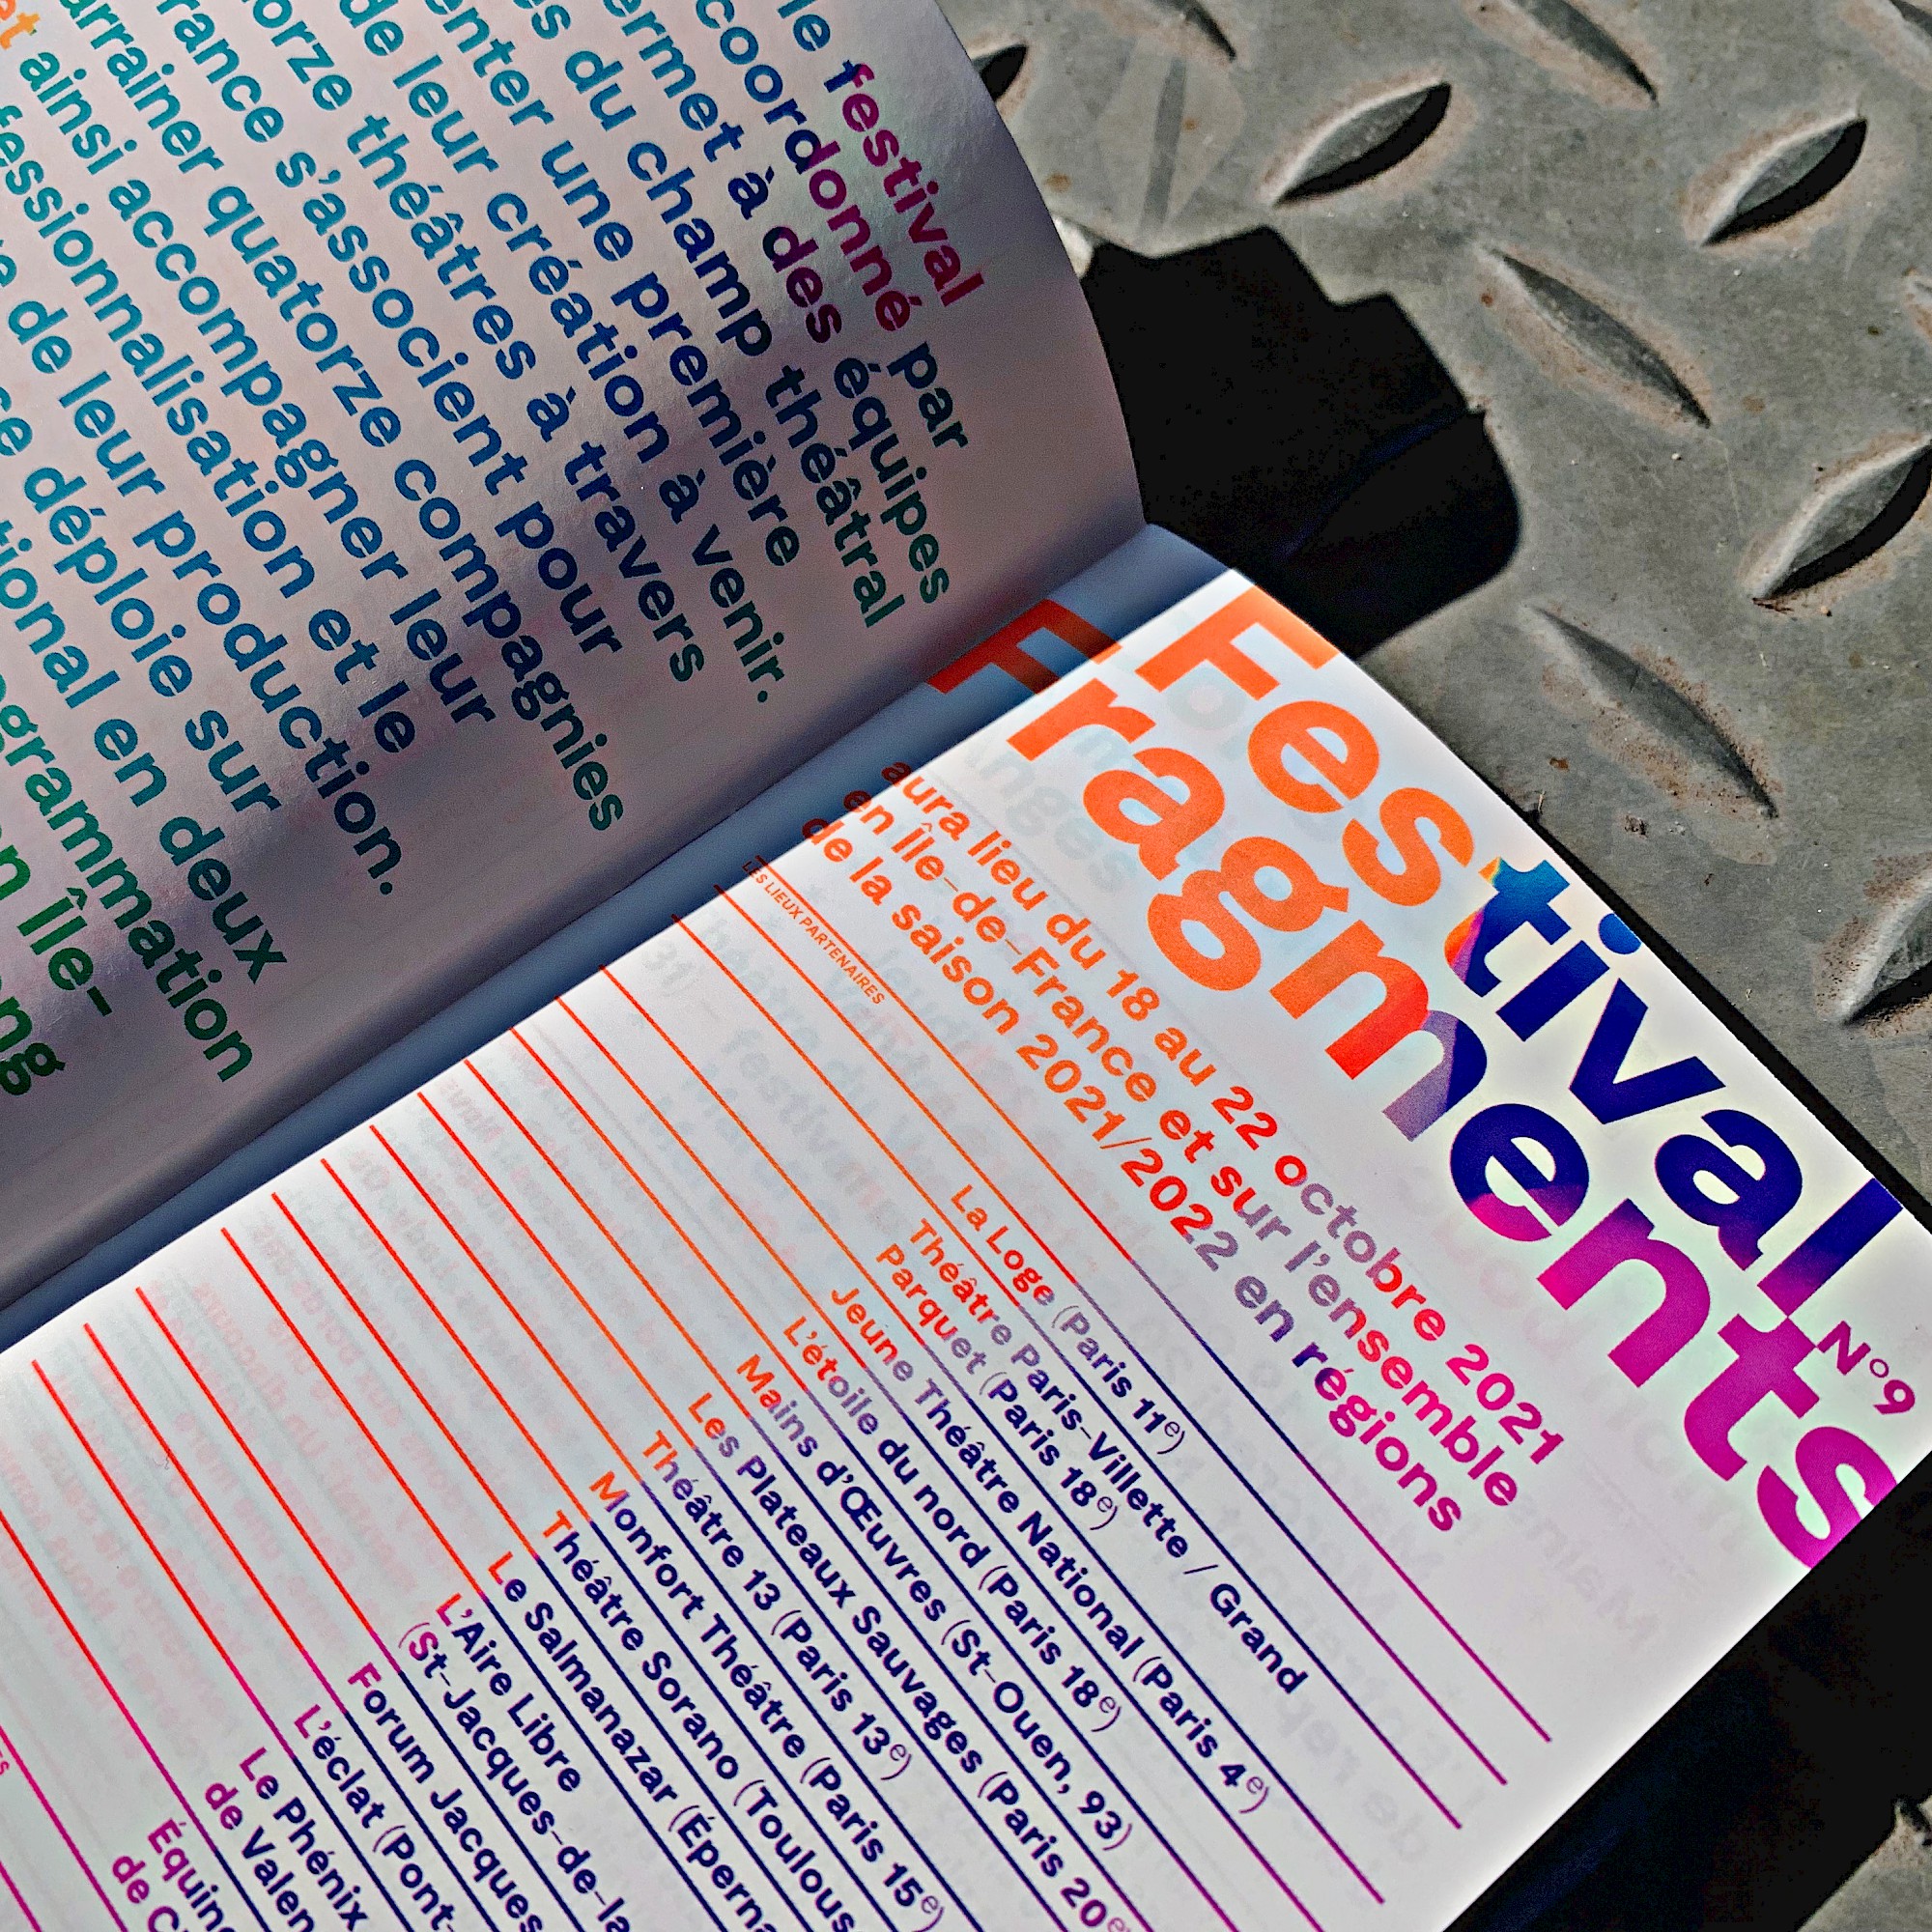 le festival
coordonné par
ermet à des équipes
es du champ théâtral
enter une première
de leur création à venir.
orze théâtres à travers
rance s'associent pour
arrainer quatorze compagnies
et ainsi accompagner leur
fessionnalisation et le
e de leur production.
se déploie sur
tional en deux
ogrammation
en Île-
ng
Festival
Fragments
N°9
aura lieu du 18 au 22 octobre 2021
en Île-de-France et sur l'ensemble
de la saison 2021/2022 en régions
LES LIEUX PARTENAIRES
La Loge (Paris 11e)
Théâtre Paris-Villette / Grand
Parquet (Paris 18e)
Jeune Théâtre National (Paris 4e)
L'étoile du nord (Paris 18e)
Mains d'Œuvres (St-Ouen, 93)
Les Plateaux Sauvages (Paris 20e
Théâtre 13 (Paris 13e)
Monfort Théâtre (Paris 15e)
Théâtre Sorano (Toulous
Le Salmanazar (Éperna
L'Aire Libre
(St-Jacques-de-la
Forum Jacques
L'éclat (Pont-
Le Phénix
de Valen
Équin
de C